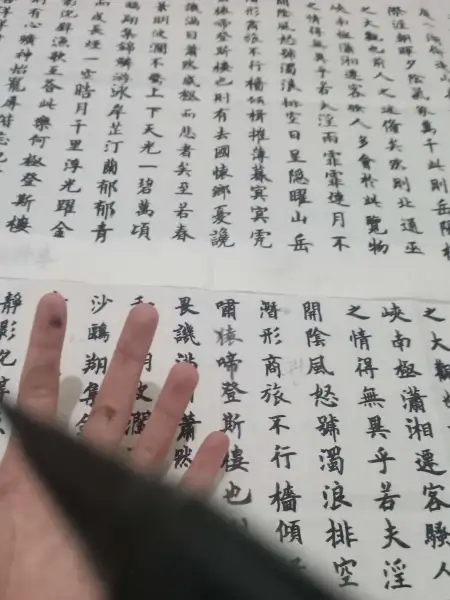 際涯朝暉夕陰氣象萬千此則岳陽樓
之大觀也前人之述備矣然則北通巫
峽南極瀟湘遷客騷人多會於此覽物
之情得無異乎若夫淫雨霏霏連月不
開陰風怒號濁浪排空日星隱曜山岳
形商旅不行檣傾楫摧薄暮冥冥虎
猿啼登斯樓也則有去國懷鄉憂讒
譏滿目蕭然感極而悲者矣至若春
景明波瀾不驚上下天光一碧萬頃
鷗翔集錦鱗游泳岸芷汀蘭郁郁青
而或長煙一空皓月千里浮光躍金
影沉璧漁歌互答此樂何極登斯樓
則有心曠神怡寵辱偕忘
之大觀
峽南極瀟湘遷客騷人
之情得無異乎若夫淫
開陰風怒號濁浪排空
潛形商旅不行檣傾
嘯猿啼登斯樓也
畏譏滿 蕭然
明波瀾
沙鷗翔集
靜影沉